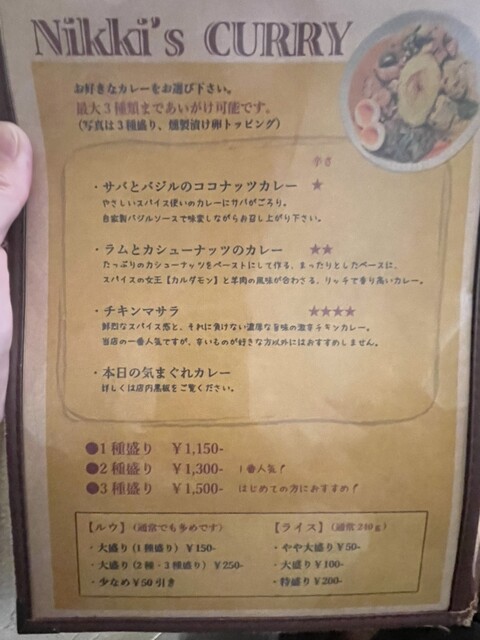 Nikki's CURRY
お好きなカレーをお選び下さい。
最大3種類まであいがけ可能です。
(写真は3種盛り、燻製漬け卵トッピング)
辛さ
・サバとバジルのココナッツカレー ★
やさしいスパイス使いのカレーにサバがごろり。
自家製バジルソースで味変しながらお召し上がり下さい。
・ラムとカシューナッツのカレー ★★
たっぷりのカシューナッツをペーストにして作る、まったりとしたベースに、
スパイスの女王【カルダモン】と羊肉の風味が合わさる、リッチで香り高いカレー。
・チキンマサラ ★★★★
鮮烈なスパイス感と、それに負けない濃厚な旨味の激辛チキンカレー。
当店の一番人気ですが、辛いものが好きな方以外にはおすすめしません。
・本日の気まぐれカレー
詳しくは店内黒板をご覧ください。
●1種盛り ￥1,150-
●2種盛り ￥1,300- 1番人気！
●3種盛り ￥1,500- はじめての方におすすめ！
【ルウ】(通常でも多めです)
・大盛り(1種盛り) ￥150-
・大盛り(2種・3種盛り) ￥250-
・少なめ￥50引き
【ライス】(通常240g)
・やや大盛り￥50-
・大盛り￥100-
・特盛り￥200-